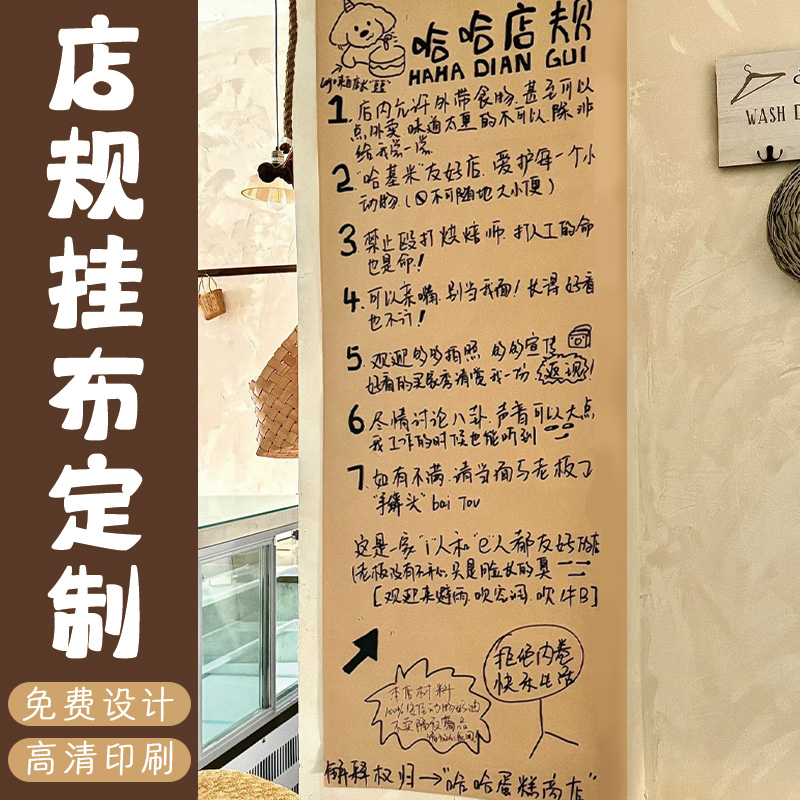 店规挂布定制
免费设计
高清印刷
哈哈店规
HAHA DIAN GUI
1. 店内允许外带食物. 甚至可以
点外卖 味道太重的不可以. 除非
给我尝一尝
2 "哈基米"友好店. 爱护每一个小
动物. (不可随地大小便)
3 禁止殴打烘焙师. 打工人的命
也是命!
4. 可以亲嘴. 别当我面! 长得好看
也不行!
5. 观迎多多拍照 多多宣传
好看的买家秀请赏我一份 返现!
6 尽情讨论八卦. 声音可以大点
我工作的时候也能听到
7 如有不满. 请当面与老板了
"手解头" bai Tou
这是一家"i"人和"e"人都友好的店
(老板没有不开心只是脸长的臭
[观迎来避雨. 吹空调. 吹牛B]
拒绝内卷
快乐生活
本店材料
100%
解释权归→"哈哈蛋糕商店"
WASH D